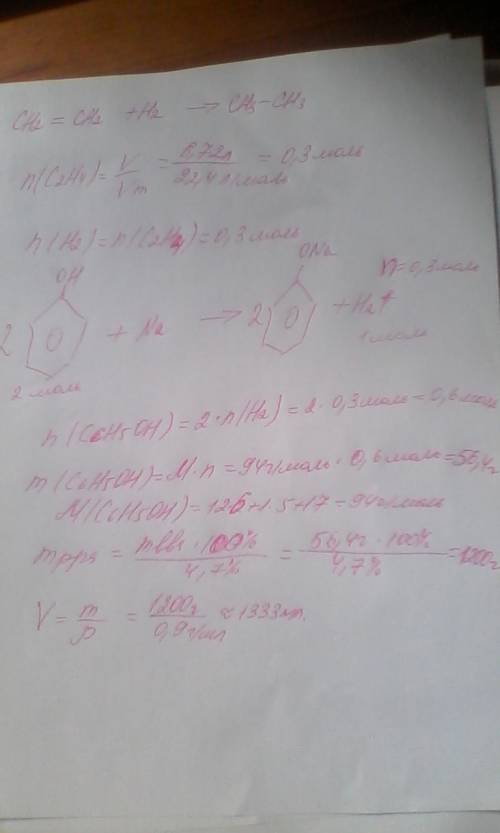 CH2 = CH2 + H2 → CH3-CH3
n(C2H4) = V/Vm = 6,72л/22,4 л/моль = 0,3 моль
n(H2) = n(C2H4) = 0,3 моль
OH ONa n=0,3 моль
2 + Na → 2 + H2↑
2 моль 1 моль
n(C6H5OH) = 2·n(H2) = 2·0,3 моль = 0,6 моль
m(C6H5OH) = M·n = 94г/моль · 0,6 моль = 56,4г
M(C6H5OH) = 12·6+1·5+17 = 94г/моль
mрра = mвва·100%/4,7% = 56,4г·100%/4,7% = 1200г
V = m/ρ = 1200г/0,9г/мл ≈ 1333мл.